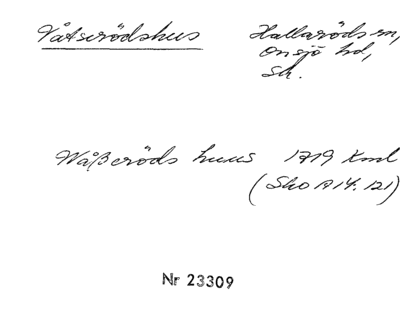 Våtserödshus
Hallaröds sn,
Onsjö hd,
Sk.
Wåßeröds huus 1719 Kml
(Sko A 14. 121)
Nr 23309